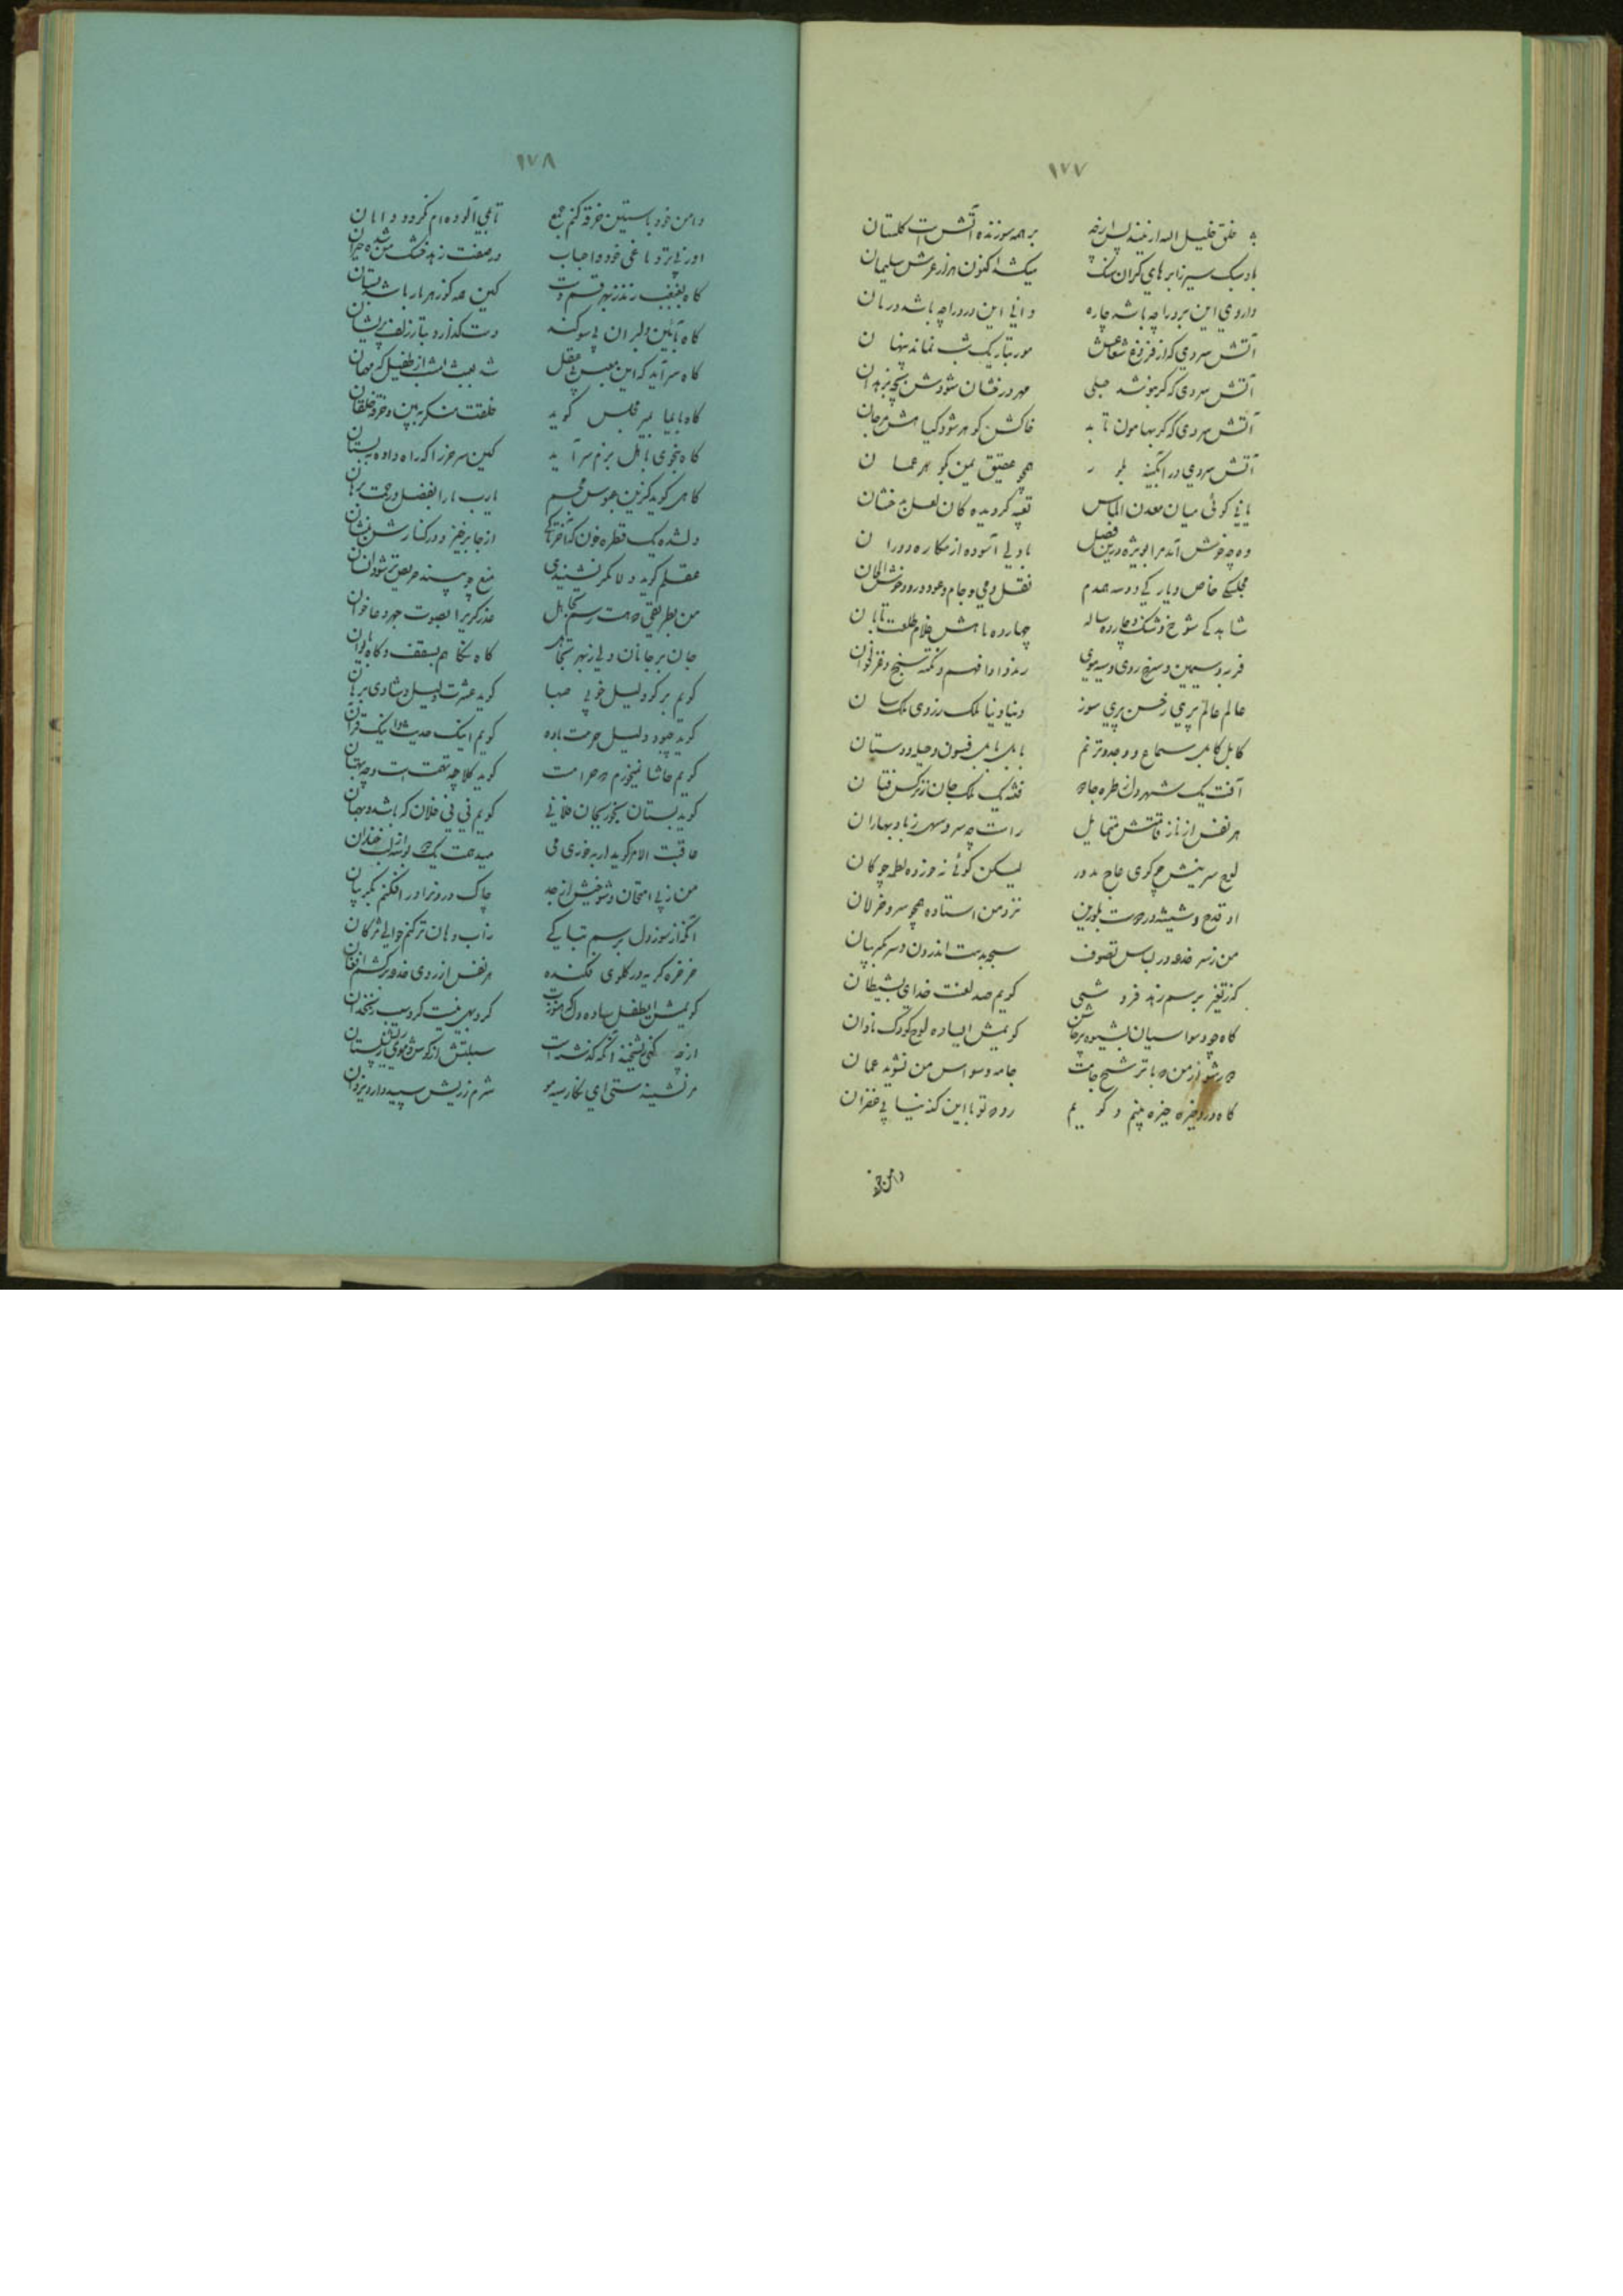 ١٧٧
خلق خلیل الله ار نیند پس از چه بر همه سوزنده آتش است کلستان
باد سبک سیر ز ابرهای کران سنک میکشد اکنون هزار عرش سلیمان
داروی این برد را چه باشد چاره دانی این درد را چه باشد درمان
آتش سردی که از فروغ شعاعش مور بتاریک شب نماند پنهان
آتش سردی که کر بنوشد حبلی مهر درخشان شودش بچه بزهدان
آتش سردی که کر بهامون تابد خاکش کوهر شود کیاهش مرجان
آتش سردی در آبکینه بلور همچو عقیق یمن بکوهر عمان
یا نی کوئی میان معدن الماس تعبیه کردیده کان لعل بدخشان
وه چه خوش آید مرا بویژه درین فصل با دلی آسوده از مکاره دوران
مجلسکی خاص و یارکی دو سه همدم نقل و می و جام و عود و رود و خوش الحان
شاهدکی شوخ و شنک و چارده ساله چارده ماهش غلام طلعت تابان
فربه و سیمین و سرخ روی و سیه موی رند و ادا فهم و نکته سنج و غزلخوان
عالم عالم پری ز حسن پری سوز دنیا دنیا ملک ز روی ملک سان
کابل کابل سماع و وجد و ترنم بابل بابل فسون و حیله و دستان
آفت یک شهر دل ز طره جادو فتنه یک ملک جان ز نرکس فتان
هر نفس از ناز قامتش متمایل راست چو سرو سهی ز باد بهاران
لوح سرینش چو کوی عاج مدور لیکن کوئی نخورده لطمه چوکان
او قدح و شیشه در دو دست بلورین نزد من استاده همچو سرو خرامان
من ز سر خدعه در لباس تصوف سبحه بدست اندرون و سر بکریبان
کز تغیر برسم زهد فروشی کویم صد لعنت خدای بشیطان
کاه چو وسواسیان بشیوه پرخاش کویمش ای ساده لوح کودک نادان
دور شو از من که با ترشح جامت جامه وسواس من نشوید عمان
کاه در او خیره خیره بینم و کویم رو که تو با این کنه نیابی غفران
دامن خود
١٧٨
دامن خود باستین خرقه کنم جمع تا بمی آلوده ام نکردد دامان
کاه بغبغب زنند زهر قسم دست کین مه کوزهر بار باشد بستان
کاه بآیین دلبران پی سوکند دست کذارد بتار زلف پریشان
کاه بایما بمیر مجلس کوید خلقت منکر ببین و خرقه خلقان
کاه بنجوی باهل بزم سرآید کین سر خر را که راه داده ببستان
کاهی کوید کزین عبوس مجسم یارب ما را بفضل و رحمت برهان
دل شده یک قطره خون که آخر تا کی از جا برخیز و در کنارش بنشان
عقلم کوید دلا مکر نشنیدی منع چو بیند حریص تر شود انسان
جان بر جانان ولی ز بهر تجاهل کاه نکاهم بسقف و کاه بایوان
کویم برکو دلیل خوبی صهبا کوید عشرت دلیل و شادی برهان
کوید چبود دلیل حرمت باده کویم اینک حدیث و اینک قرآن
کویم حاشا نمیخورم که حرامست کوید کلا چه تهمت است و چه بهتان
کوید بستان بخور بجان فلانی کویم نی نی فلان که باشد و بهمان
عاقبت الامر کوید ار بخوری می میدهمت یک دو بوسه از لب خندان
من ز پی امتحان شوخیش از جد چاک دو روزه در افکنم بکریبان
آنکه از سوز دل برسم تباکی ز آب دهان تر کنم حوالی مژکان
خرخره کریه در کلوی فکنده هر نفس از روی خدعه برکشم افغان
کویمش ای طفل ساده رو که هنوزت کرد بهی نیست کرد سیب زنخدان
مر نشنیدستی ای نکار سیه مو شرم ز ریش سپید دارد یزدان